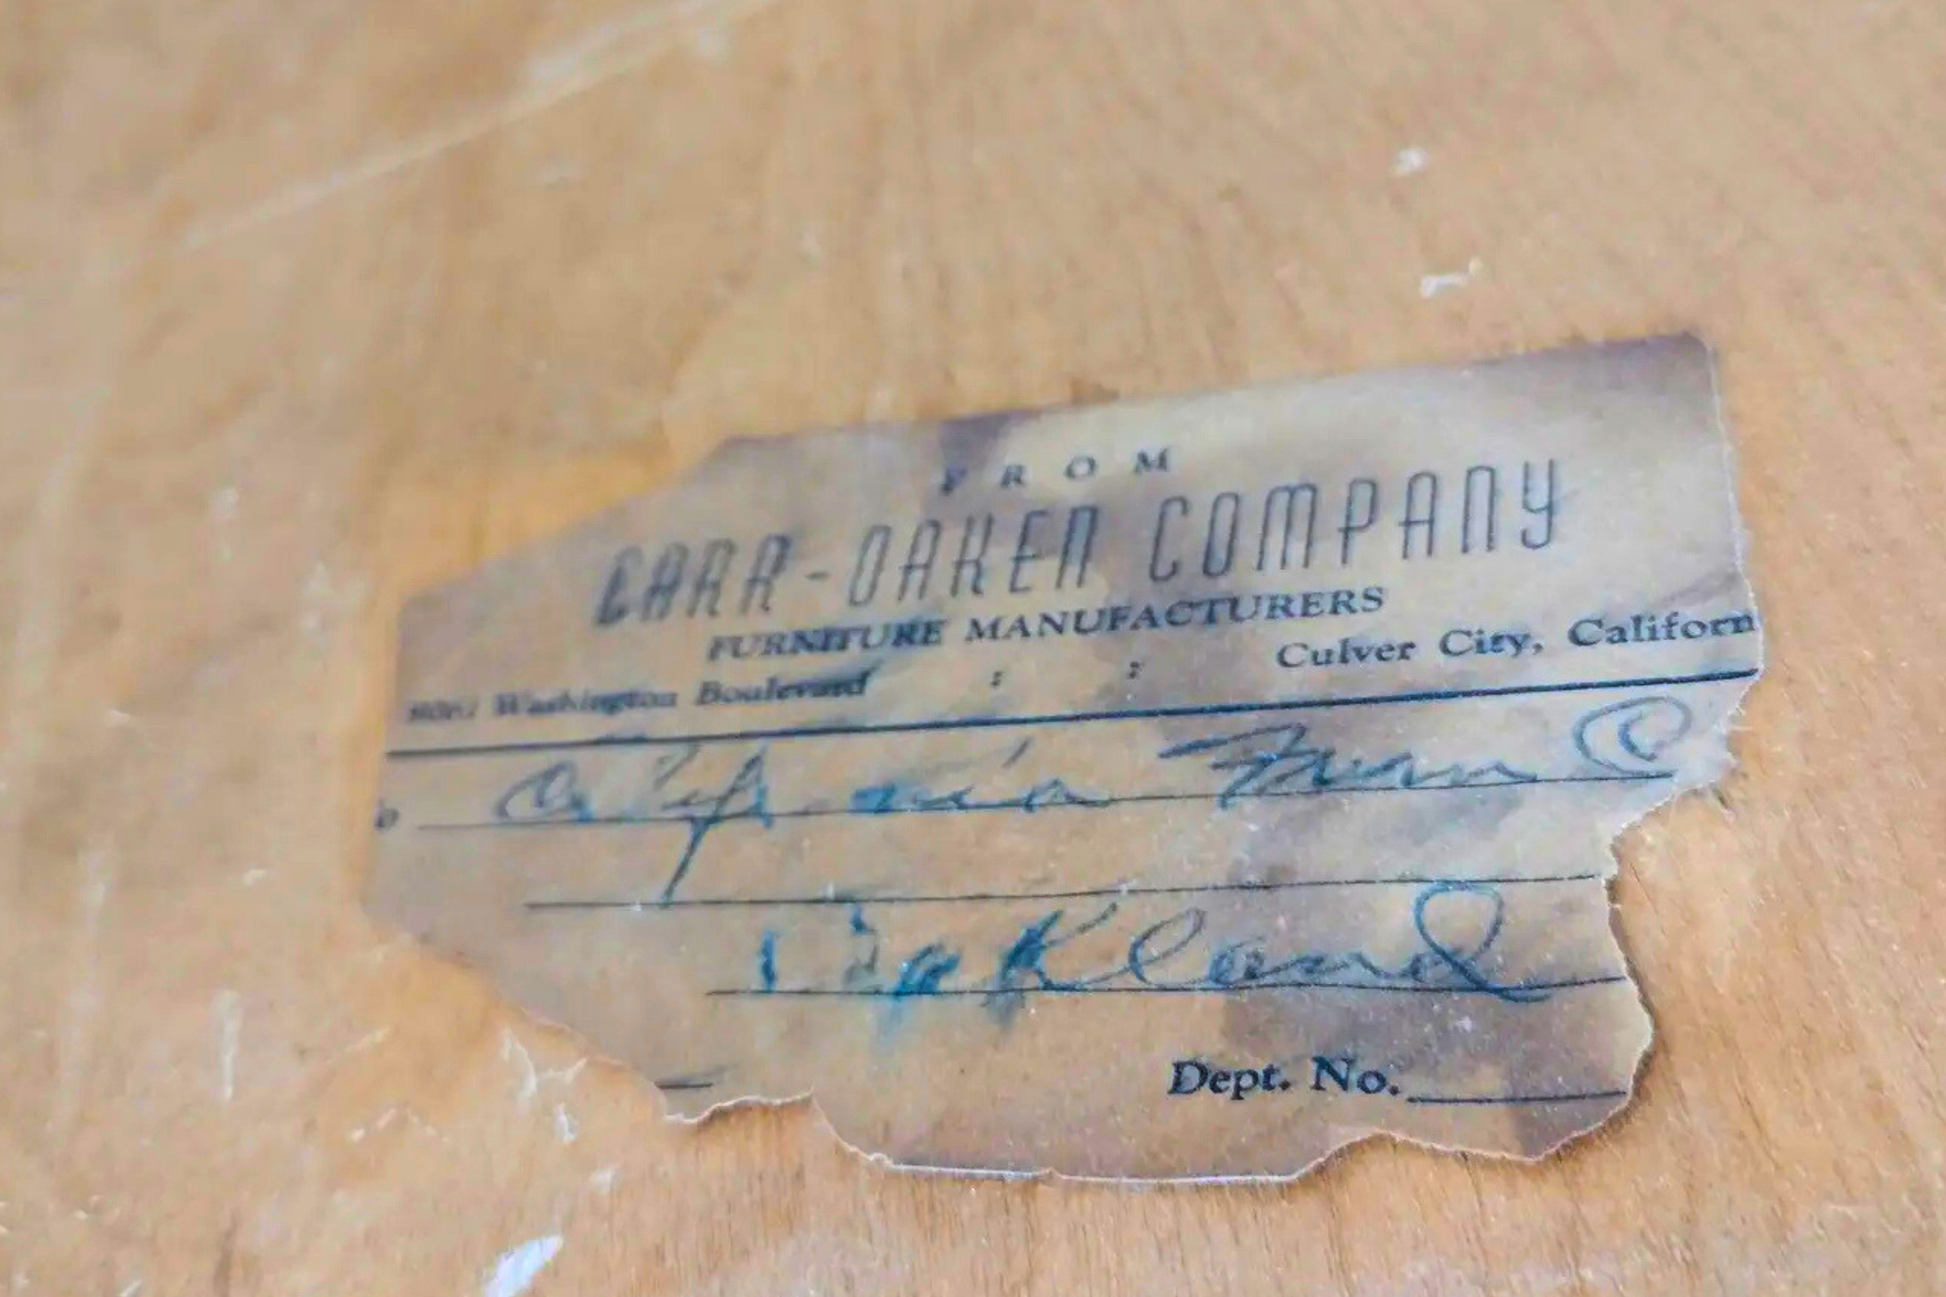 FROM
CARR-OAKEN COMPANY
FURNITURE MANUFACTURERS
Washington Boulevard : : Culver City, Californ
o California Furn C
Oakland
Dept. No.